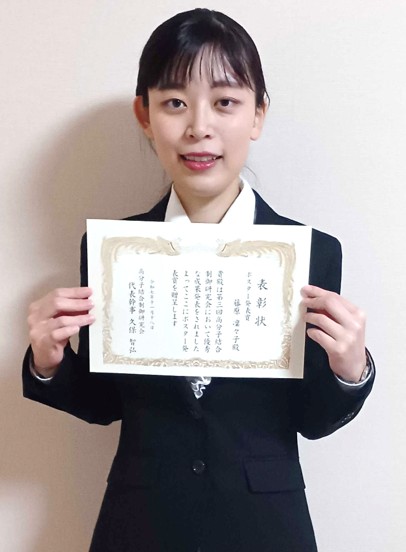 表彰状
ポスター発表賞
藤原 凜々子殿
貴殿は第三回高分子結合
制御研究会において優秀
な成果発表をされました
よってここにポスター発
表賞を贈呈します
高分子結合制御研究会
代表幹事 久保 智弘